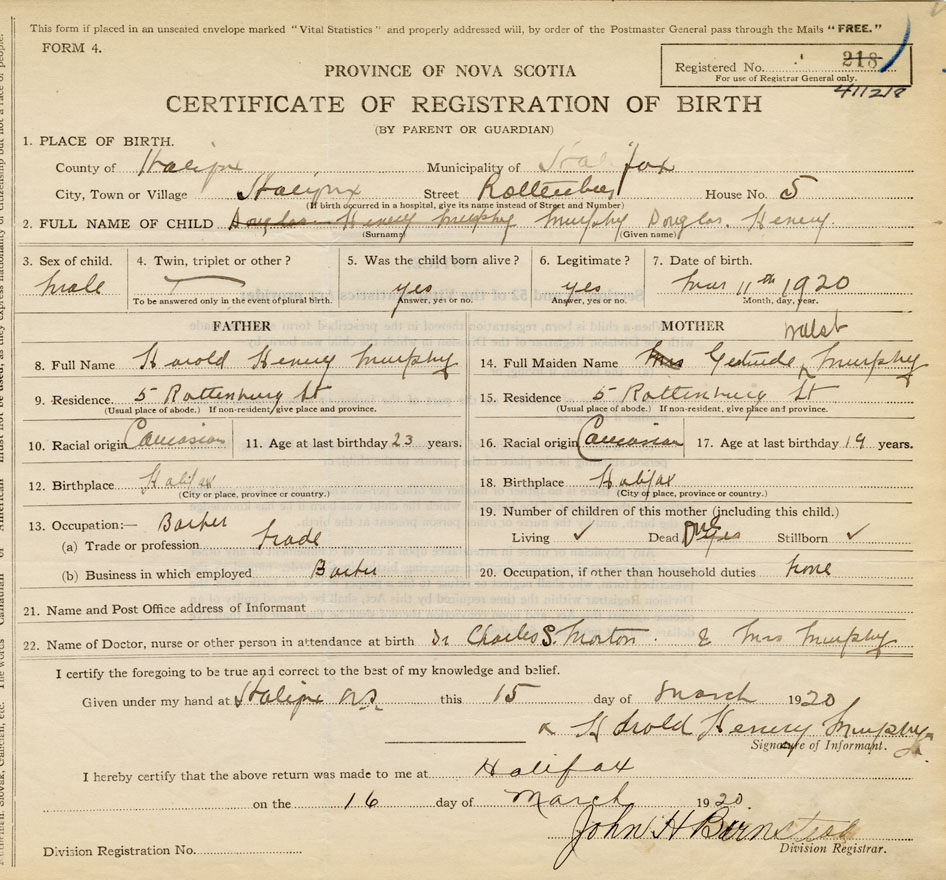 This form if placed in an unsealed envelope marked "Vital Statistics" and properly addressed will, by order of the Postmaster General pass through the Mails "FREE."
FORM 4.
Registered No. 218
For use of Registrar General only.
411218
PROVINCE OF NOVA SCOTIA
CERTIFICATE OF REGISTRATION OF BIRTH
(BY PARENT OR GUARDIAN)
1. PLACE OF BIRTH.
County of Halifax Municipality of Halifax
City, Town or Village Halifax Street Rottenburg House No. 5
(If birth occurred in a hospital, give its name instead of Street and Number)
2. FULL NAME OF CHILD Douglas Henery Murphy Murphy Douglas. Henery.
(Surname) (Given name)
3. Sex of child. 4. Twin, triplet or other? 5. Was the child born alive? 6. Legitimate? 7. Date of birth.
Male yes yes Mar 11th 1920
To be answered only in the event of plural birth. Answer, yes or no. Answer, yes or no. Month, day, year.
FATHER
8. Full Name Harold Henery Murphy
9. Residence. 5 Rottenburg St
(Usual place of abode.) If non-resident, give place and province.
10. Racial origin Caucasian 11. Age at last birthday 23 years.
12. Birthplace Halifax
(City or place, province or country.)
13. Occupation:— Barber
(a) Trade or profession trade
(b) Business in which employed Barber
MOTHER
Walsh
14. Full Maiden Name Mrs Getrude Murphy
15. Residence 5 Rottenburg St
(Usual place of abode.) If non-resident, give place and province.
16. Racial origin Caucasian 17. Age at last birthday 19 years.
18. Birthplace Halifax
(City or place, province or country.)
19. Number of children of this mother (including this child.)
Living ✓ Dead One yes Stillborn ✓
20. Occupation, if other than household duties none
21. Name and Post Office address of Informant
22. Name of Doctor, nurse or other person in attendance at birth Dr Charles S. Morton. & Mrs Murphy
I certify the foregoing to be true and correct to the best of my knowledge and belief.
Given under my hand at Halifax N.S. this 15 day of March 1920
x Harold Henery Murphy
Signature of Informant.
I hereby certify that the above return was made to me at Halifax
on the 16 day of March 1920.
John H Barnstead
Division Registrar.
Division Registration No.